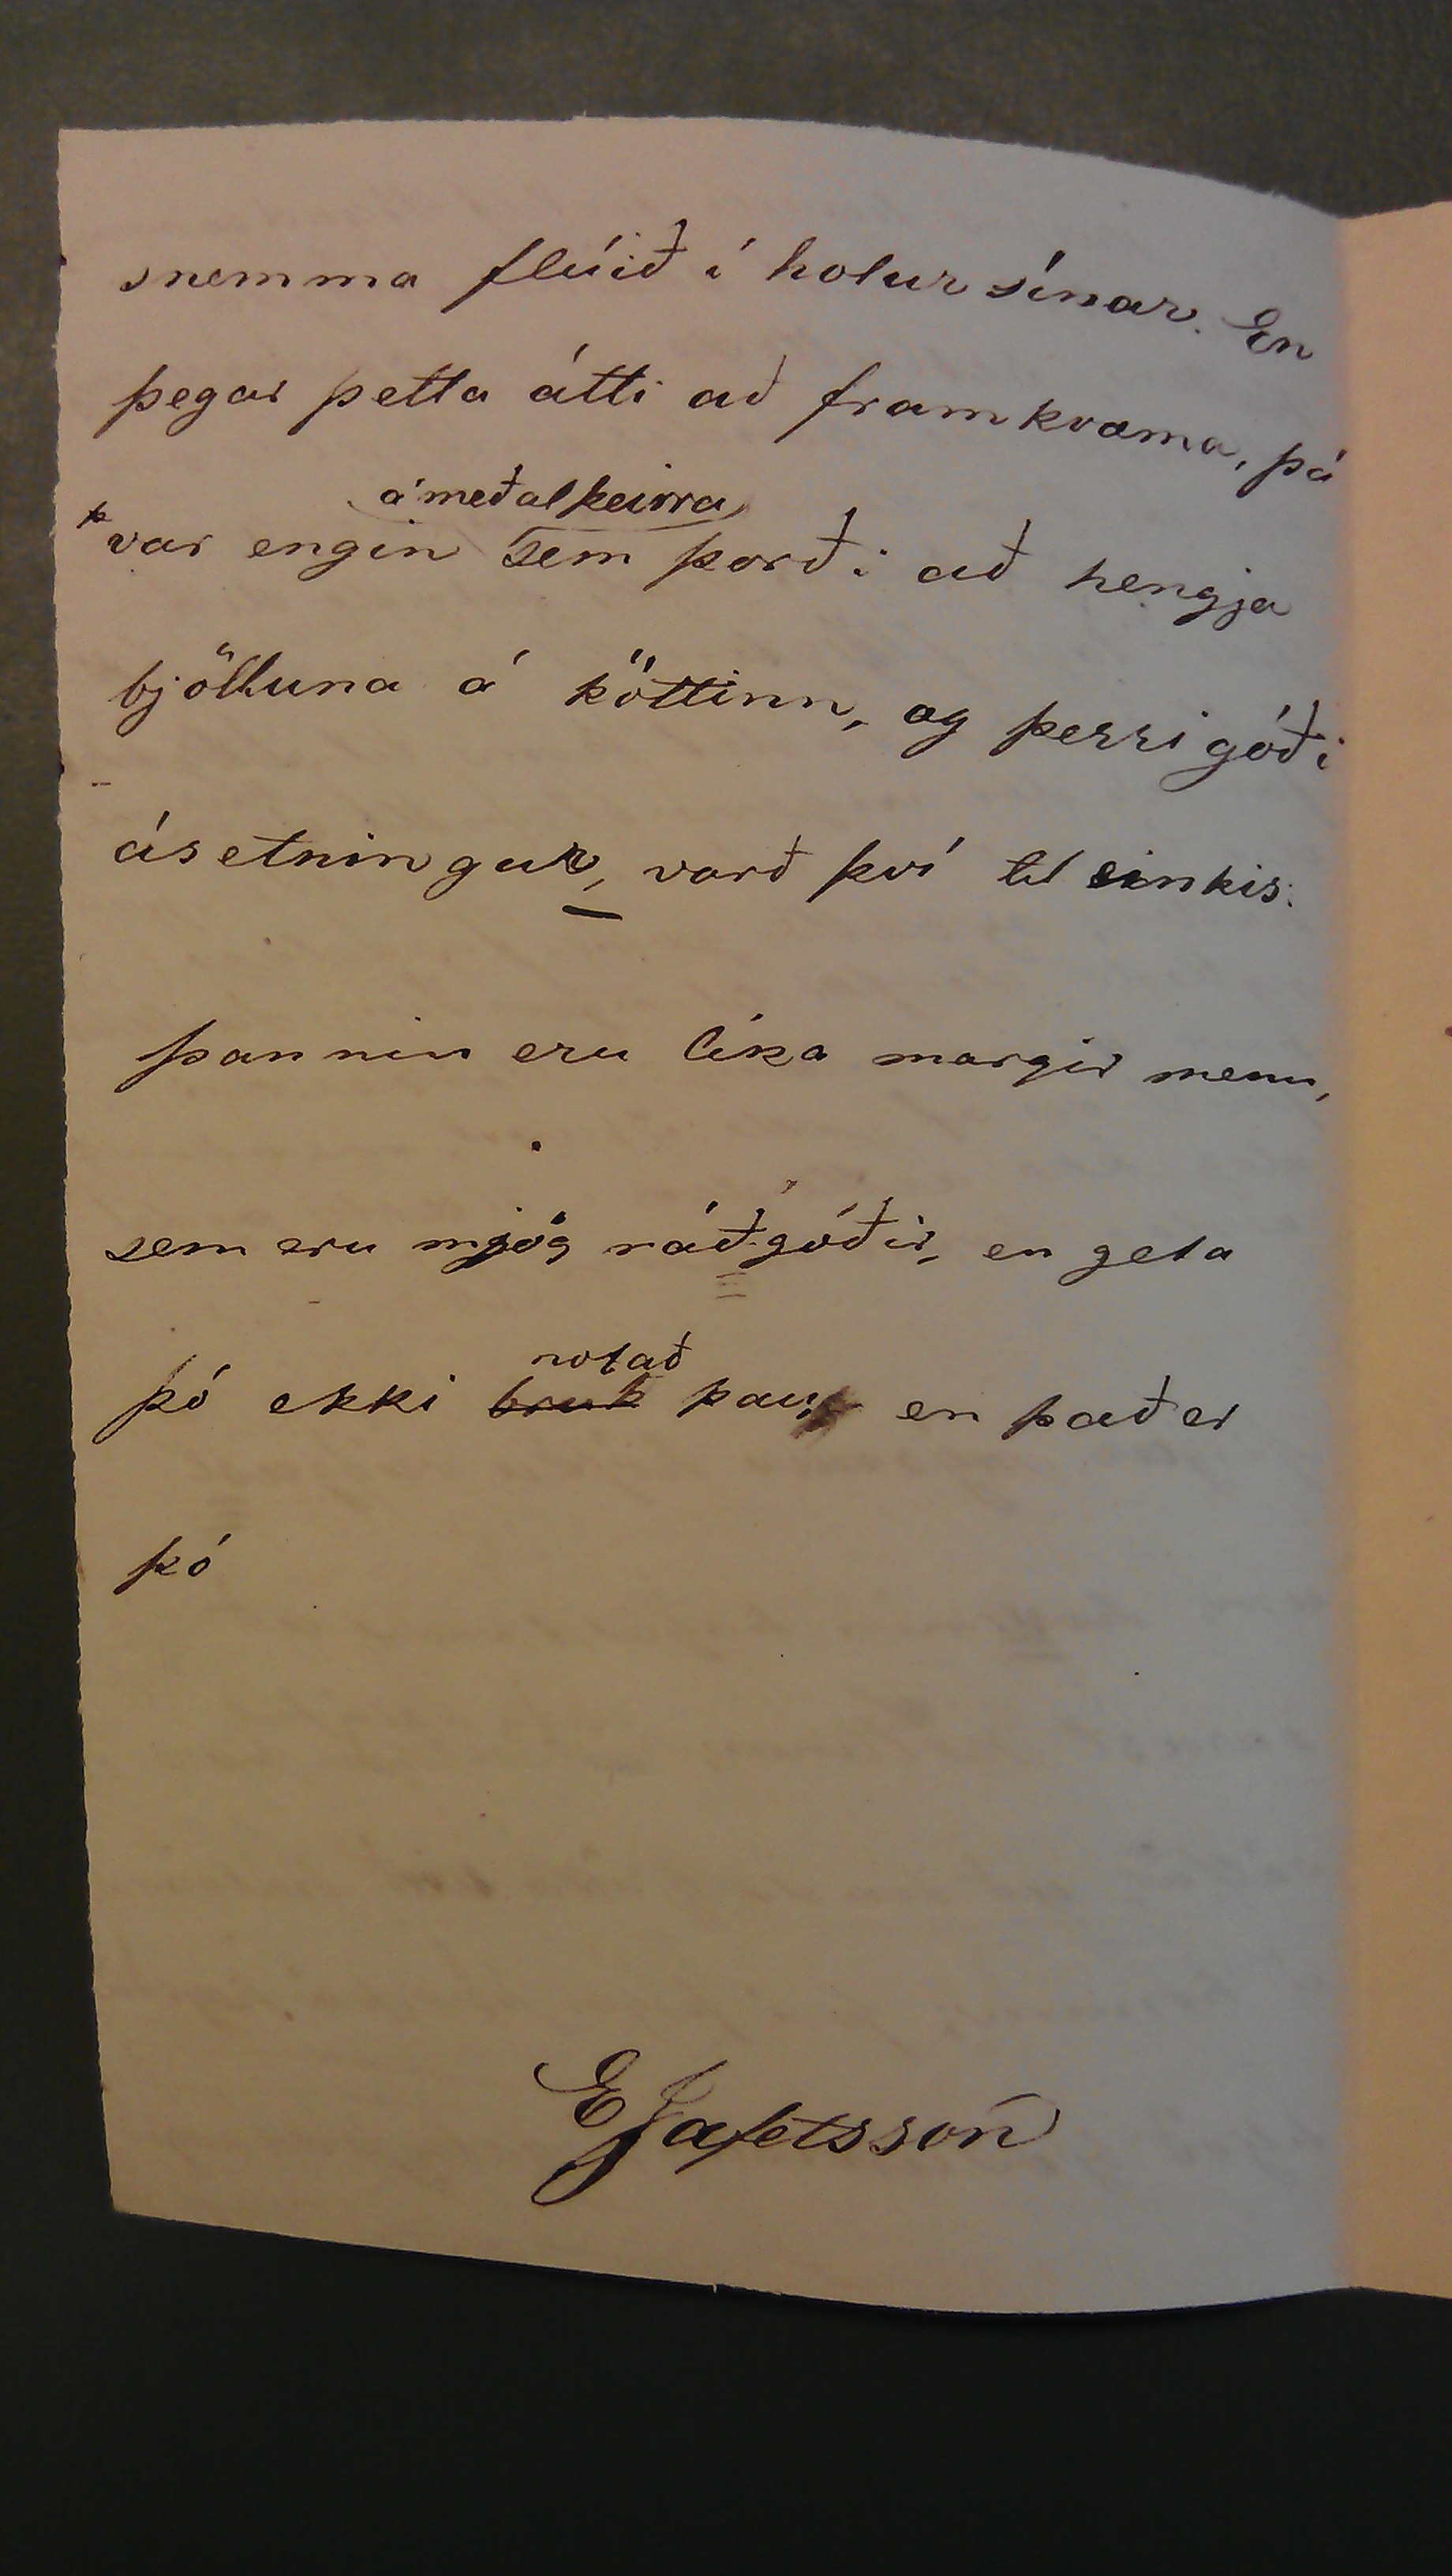 snemma flúið í holur sínar. En
þegar þetta átti að framkvæma, þá
á meðal þeirra
var engin sem þorði að hengja
bjölluna á köttinn, og þessi góði
ásetningur, varð því til einkis.
þannin eru líka margir menn,
sem eru mjög ráðgóðir, en geta
notað
þó ekki bruk þau, en það er
þó
EJafetsson